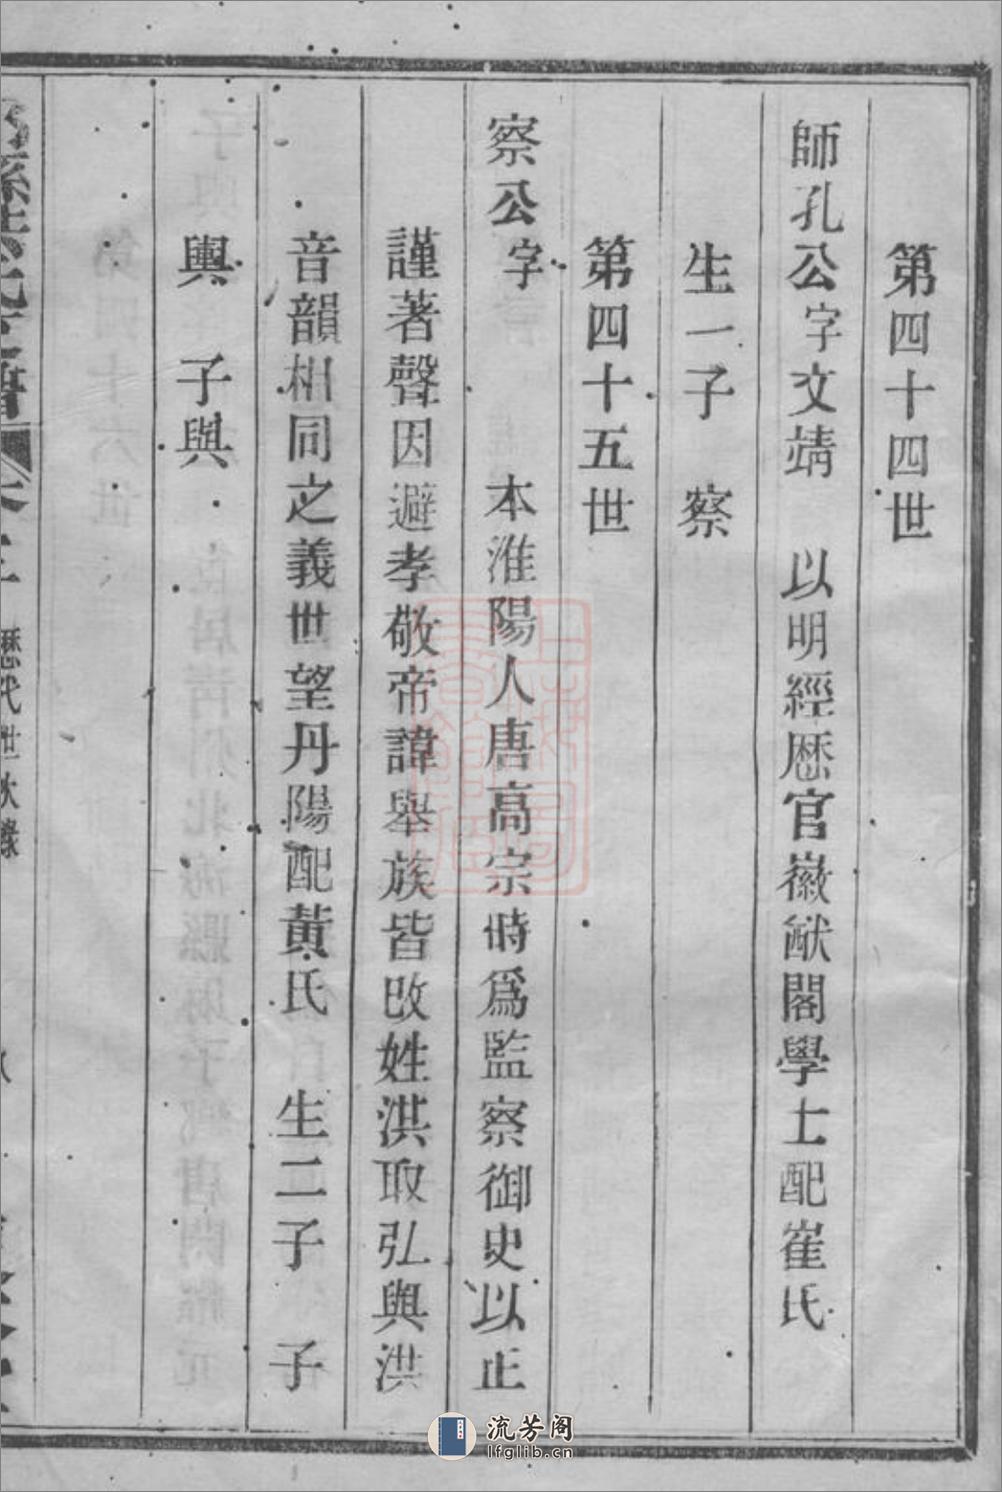 第四十四世
師孔公字文靖　以明經歷官徽猷閣學士配崔氏
生一子　察
第四十五世
察公字　本淮陽人唐高宗時爲監察御史以正
謹著聲因避孝敬帝諱舉族皆改姓洪取弘與洪
音韻相同之義世望丹陽配黃氏　生二子　子
輿　子與
歷代世次錄
流芳阁
lfglib.cn